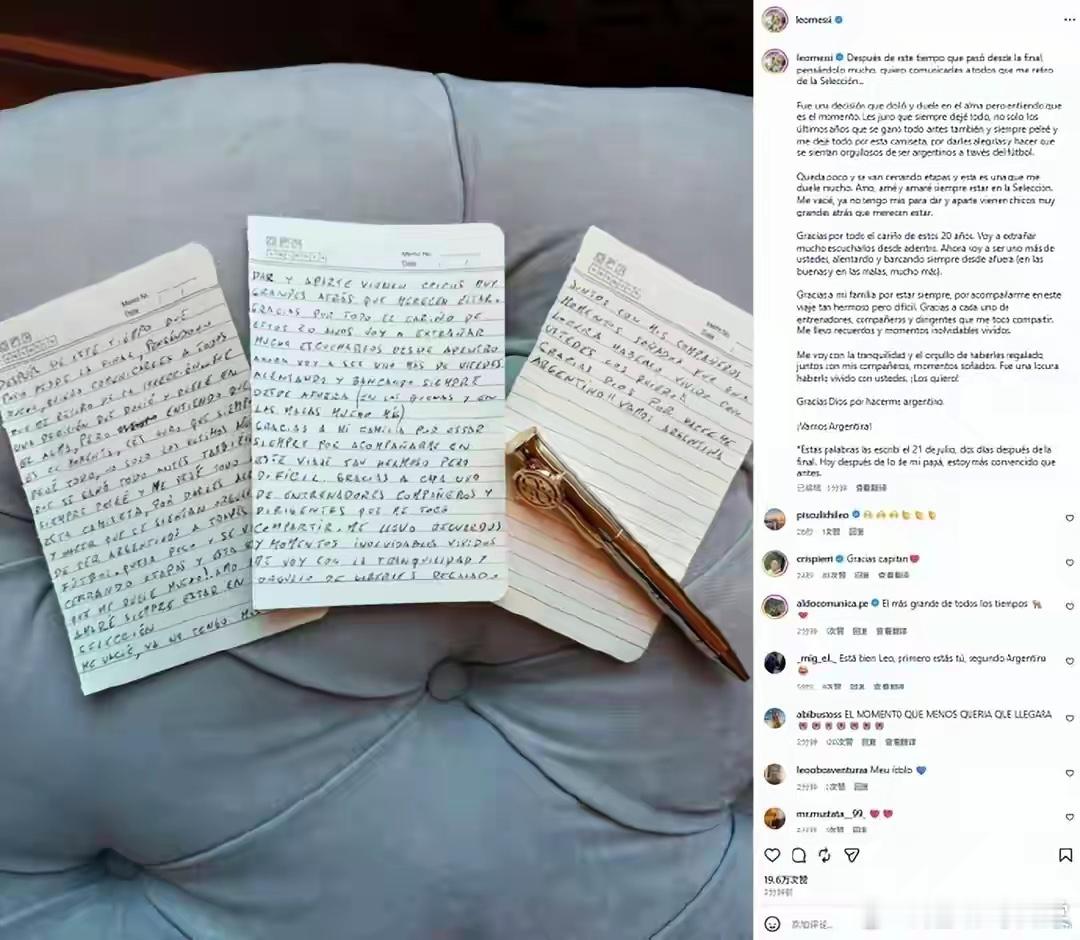 Memo No.
Date
DESPUÉS DE ESTE TIEMPO QUE
PASÓ DESDE LA FINAL, PENSÁNDOLO
MUCHO, QUIERO COMUNICARLES A TODOS
QUE ME RETIRO DE LA SELECCIÓN
UNA DECISIÓN QUE DOLIÓ Y DUELE EN
EL ALMA, PERO ENTIENDO QUE
ES EL MOMENTO, LES JURO QUE SIEMPRE
DEJÉ TODO, NO SOLO LOS ÚLTIMOS
QUE SE GANÓ TODO ANTES TAMBIÉN
SIEMPRE PELEÉ Y ME DEJÉ TODO
ESTA CAMISETA, POR DARLES
Y HACER QUE SE SIENTAN
DE SER ARGENTINOS A TRAVÉS
FÚTBOL. QUEDA POCO Y SE
CERRANDO ETAPAS Y ESTA
QUE ME DUELE MUCHO! AMO
AMARÉ SIEMPRE ESTAR EN
SELECCIÓN
ME VACIÉ, YA NO TENGO
Memo No.
Date
DAR Y APARTE VIENEN CHICOS MUY
GRANDES ATRÁS QUE MERECEN ESTAR.
GRACIAS POR TODO EL CARIÑO DE
ESTOS 20 AÑOS VOY A EXTRAÑAR
MUCHO ESCUCHARLOS DESDE ADENTRO
AHORA VOY A SER UNO MÁS DE USTEDES
ALENTANDO Y BANCANDO SIEMPRE
DESDE AFUERA (EN LAS BUENAS Y EN
LAS MALAS MUCHO MÁS)
GRACIAS A MI FAMILIA POR ESTAR
SIEMPRE POR ACOMPAÑARME EN
ESTE VIAJE TAN HERMOSO PERO
DIFÍCIL. GRACIAS A CADA UNO
DE ENTRENADORES COMPAÑEROS Y
DIRIGENTES QUE ME TOCÓ
COMPARTIR. ME LLEVO RECUERDOS
Y MOMENTOS INOLVIDABLES VIVIDOS
ME VOY CON LA TRANQUILIDAD Y
ORGULLO DE HABERLES REGALADO
Memo No.
Date
JUNTOS CON MIS COMPAÑEROS
MOMENTOS SOÑADOS FUE UNA
LOCURA HABERLO VIVIDO CON
USTEDES LOS QUIERO
GRACIAS DIOS POR HACERME
ARGENTINO!! VAMOS ARGENTINA
leomessi
leomessi Después de este tiempo que pasó desde la final
pensándolo mucho, quiero comunicarles a todos que me retiro
de la Selección...
Fue una decisión que dolió y duele en el alma pero entiendo que
es el momento. Les juro que siempre dejé todo, no solo los
últimos años que se ganó todo antes también y siempre peleé y
me dejé todo por esta camiseta, por darles alegrías y hacer que
se sientan orgullosos de ser argentinos a través del fútbol.
Queda poco y se van cerrando etapas y esta es una que me
duele mucho. Amo, amé y amaré siempre estar en la Selección.
Me vacié, ya no tengo más para dar y aparte vienen chicos muy
grandes atrás que merecen estar.
Gracias por todo el cariño de estos 20 años. Voy a extrañar
mucho escucharlos desde adentro. Ahora voy a ser uno más de
ustedes, alentando y bancando siempre desde afuera (en las
buenas y en las malas, mucho más).
Gracias a mi familia por estar siempre, por acompañarme en este
viaje tan hermoso pero difícil. Gracias a cada uno de
entrenadores, compañeros y dirigentes que me tocó compartir.
Me llevo recuerdos y momentos inolvidables vividos.
Me voy con la tranquilidad y el orgullo de haberles regalado,
juntos con mis compañeros, momentos soñados. Fue una locura
haberlo vivido con ustedes. ¡Los quiero!
Gracias Dios por hacerme argentino.
¡Vamos Argentina!
*Estas palabras las escribí el 21 de julio, dos días después de la
final. Hoy después de lo de mi papá, estoy más convencido que
antes.
已编辑 查看翻译
回复
crispierri Gracias capitan
回复 查看翻译
aldocomunica.pe El más grande de todos los tiempos
2分钟 回复 查看翻译
_mig_el_ Está bien Leo, primero estás tú, segundo Argentina
回复 查看翻译
abibustoss EL MOMENTO QUE MENOS QUERIA QUE LLEGARA
2分钟 回复 查看翻译
leooboaventuraa Meu ídolo
2分钟 回复
mr.mustafa__99_
回复
19.6万次赞
添加评论...